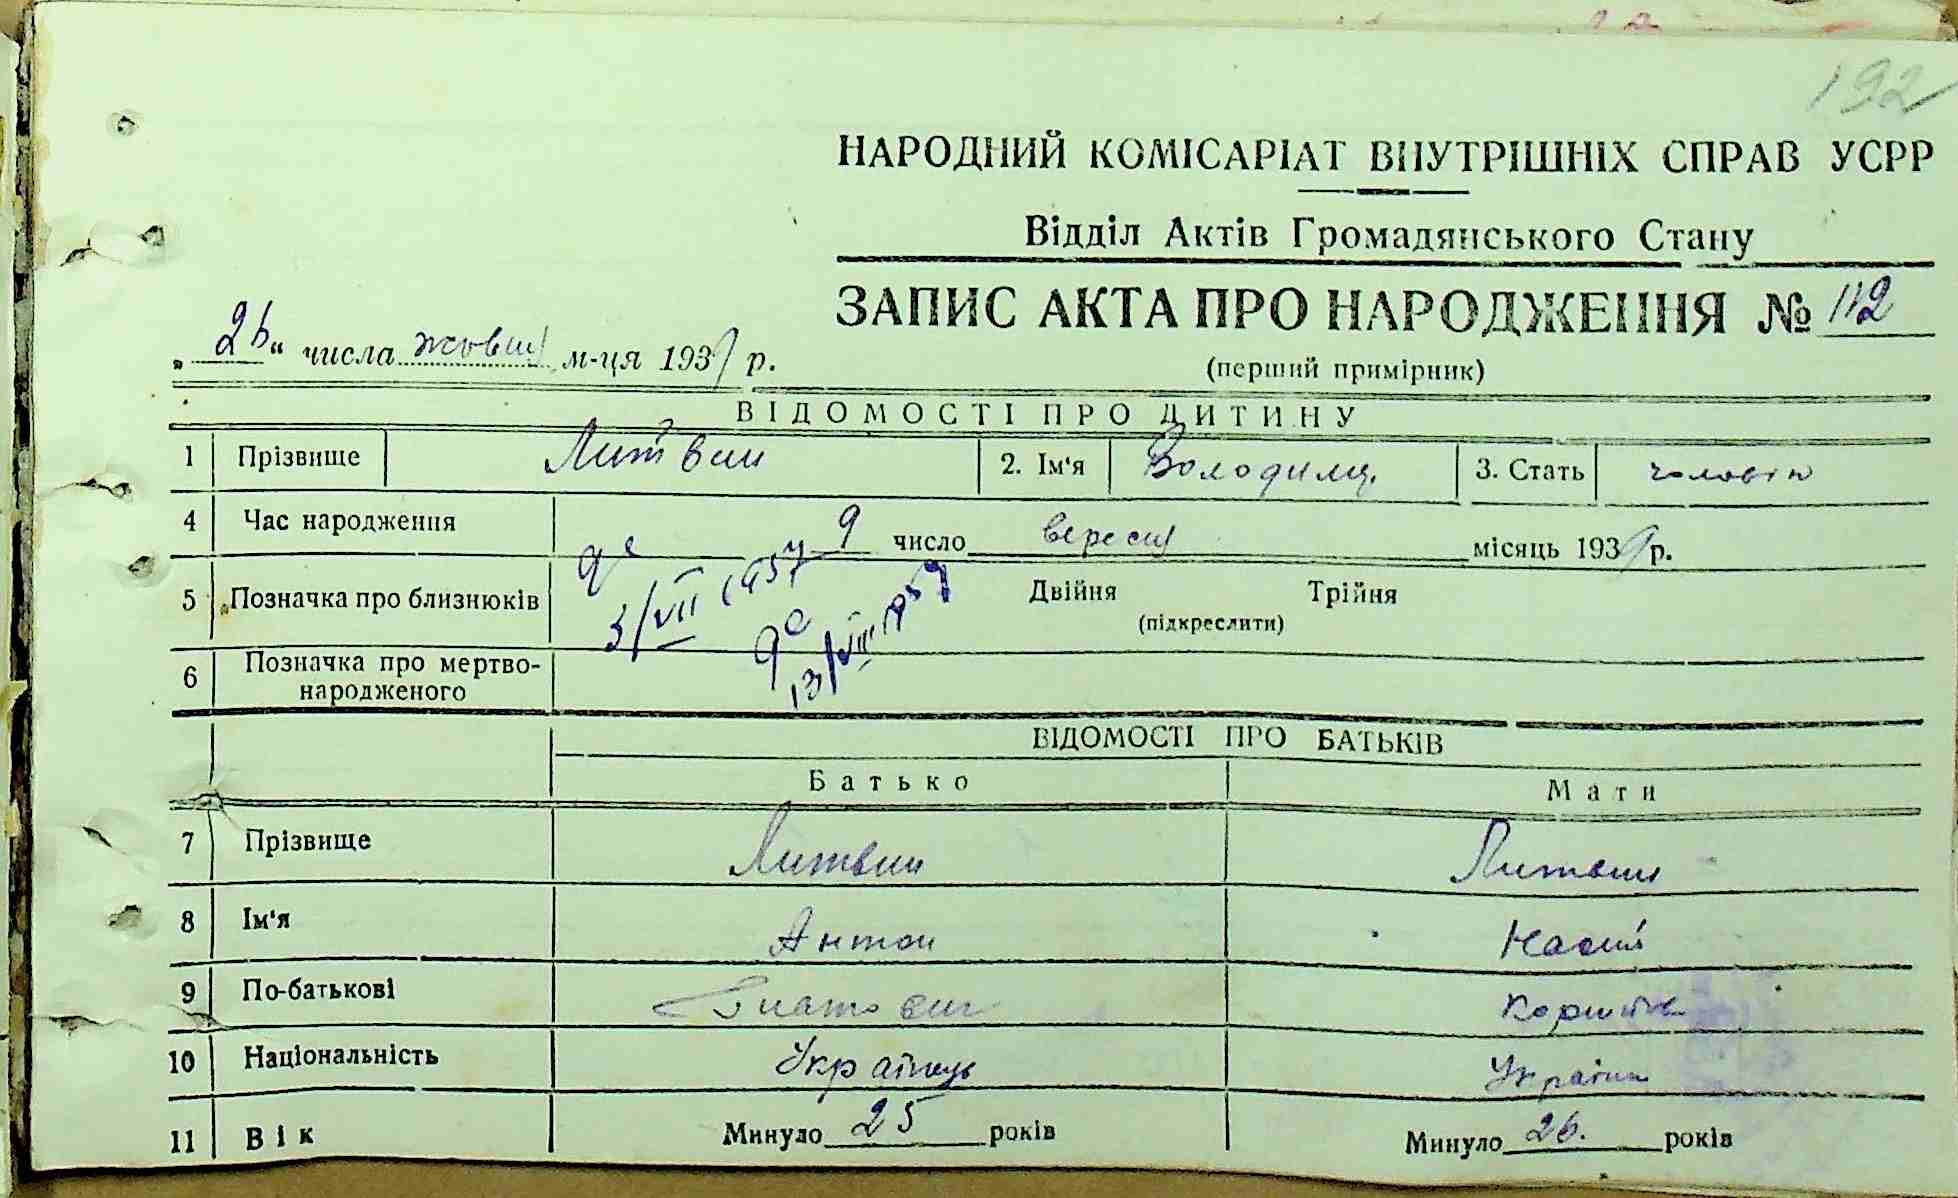 192
НАРОДНИЙ КОМІСАРІАТ ВНУТРІШНІХ СПРАВ УСРР
Відділ Актів Громадянського Стану
ЗАПИС АКТА ПРО НАРОДЖЕННЯ № 112
(перший примірник)
„ 26 “ числа жовтн м-ця 193 р.
ВІДОМОСТІ ПРО ДИТИНУ
1 Прізвище Литвин 2. Ім'я Володимир 3. Стать чоловіч
4 Час народження 9 число вересн місяць 193 р.
5 Позначка про близнюків Двійня Трійня
(підкреслити)
3/VII 1957
13/VIII 1959
6 Позначка про мертво-
народженого
ВІДОМОСТІ ПРО БАТЬКІВ
Батько Мати
7 Прізвище Литвин Литвин
8 Ім'я Антон
9 По-батькові Гнатович
10 Національність Українець Українк
11 Вік Минуло 25 років Минуло 26. років